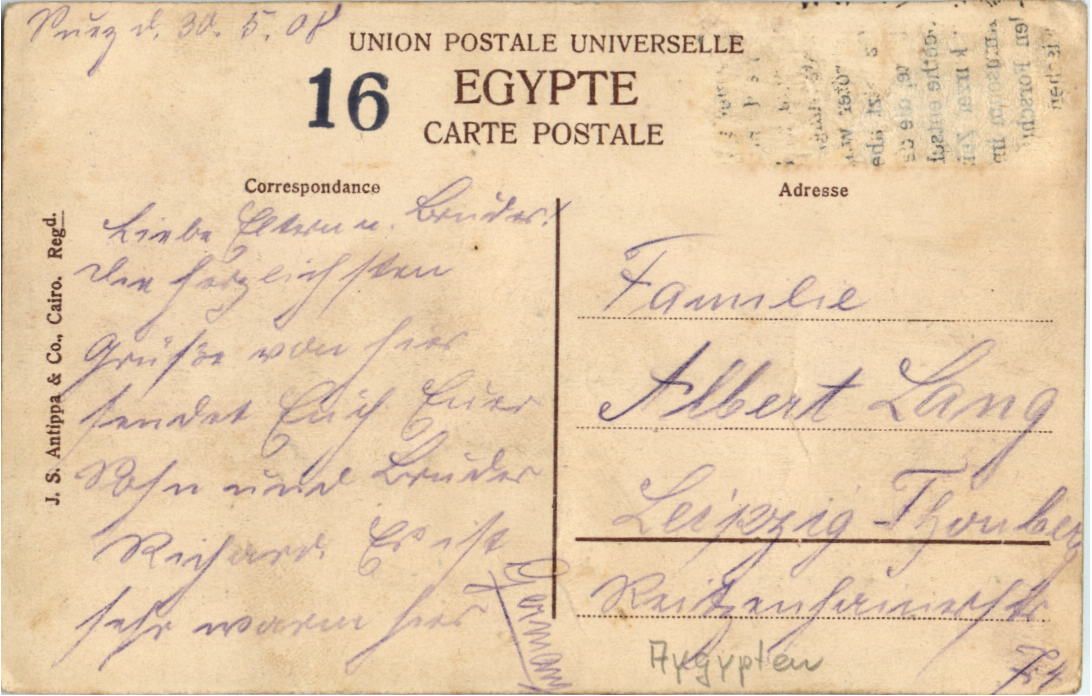 Suez d. 30. 5. 08
UNION POSTALE UNIVERSELLE
16
EGYPTE
CARTE POSTALE
Correspondance
Adresse
J. S. Antippa & Co., Cairo. Regd.
Liebe Eltern u. Bruder!
Die herzlichsten
Grüße von hier
sendet Euch Euer
Sohn und Bruder
Richard. Es ist
sehr warm hier
Familie
Albert Lang
Leipzig-Thonberg
Reitzenhainerstr
Germany
Aygypten